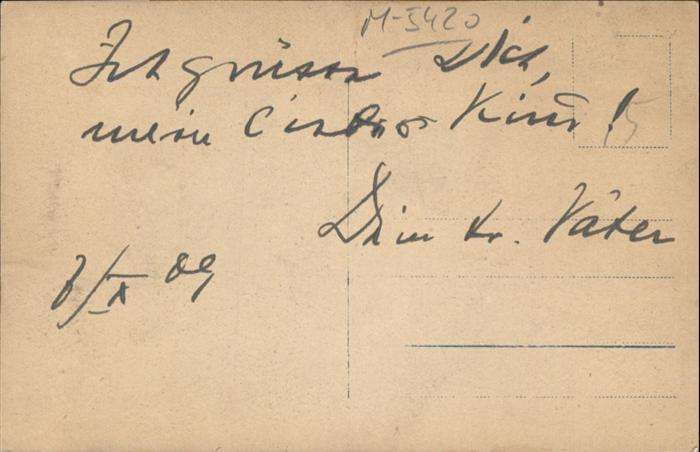 M-5420
Ich grüsse Dich,
mein liebes Kind!
15
Dein tr. Vater
8/IX 09